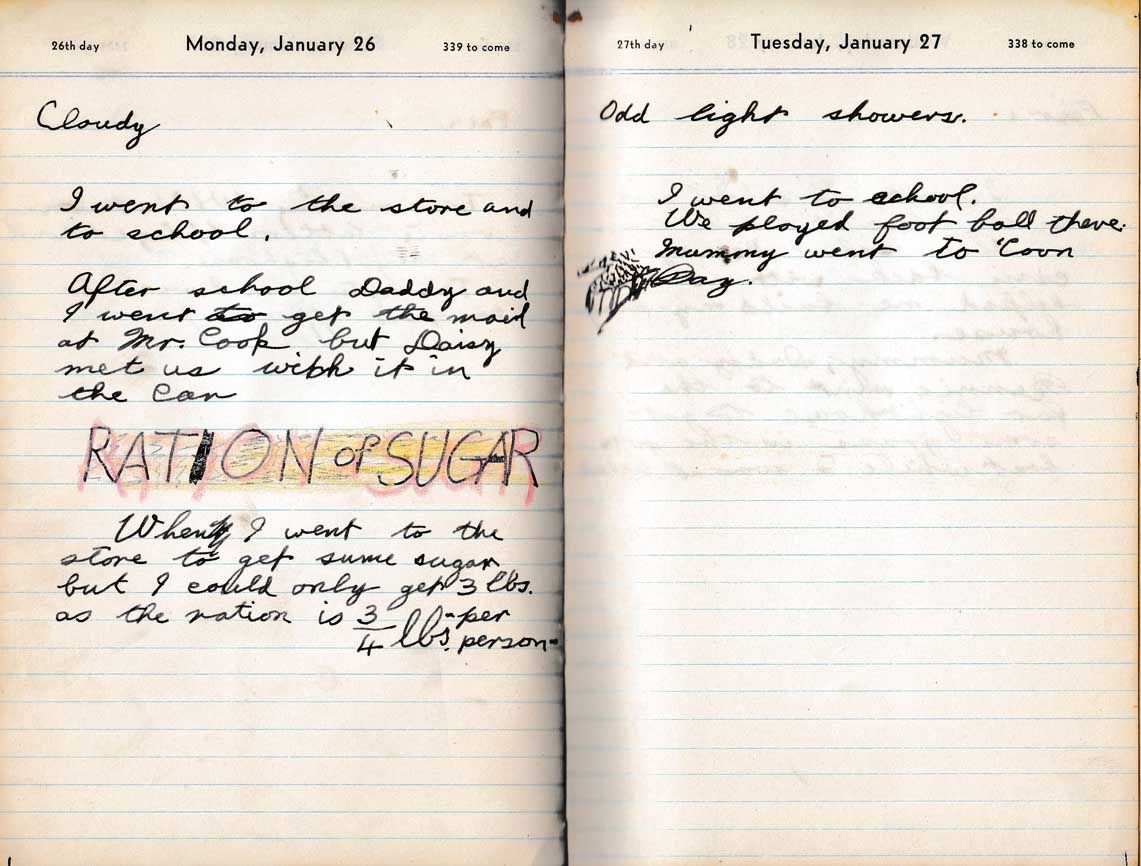 26th day Monday, January 26 339 to come
Cloudy
I went to the store and
to school.
After school Daddy and
I went to get the mail
at Mr. Cook but Daisy
met us with it in
the Car
RATION of SUGAR
When I went to the
store to get sume sugar
but I could only get 3 lbs.
as the ration is 3/4 lbs. per
person
27th day Tuesday, January 27 338 to come
Odd light showers.
I went to school.
We played foot ball there.
Mummy went to 'Coon
Day.